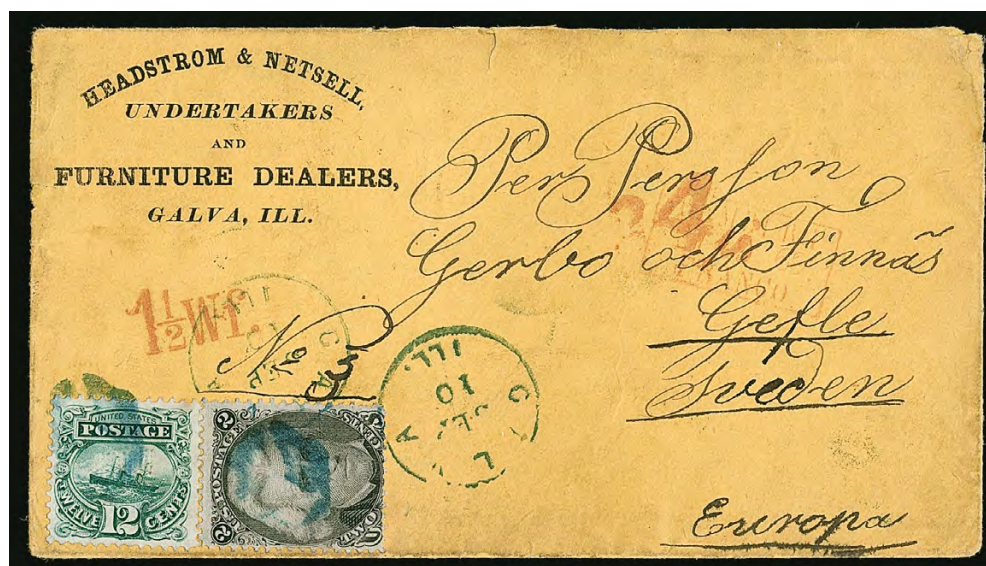 HEADSTROM & NETSELL,
UNDERTAKERS
AND
FURNITURE DEALERS,
GALVA, ILL.
Per Persson
Gerbo och Finnäs
Gefle
Sweden
Europa
1½ Wf.
FRANCO
GALVA
ILL.
SEP
10
GALVA
ILL.
SEP
10
UNITED STATES
POSTAGE
TWELVE 12 CENTS
U.S. POSTAGE
2 2
TWO